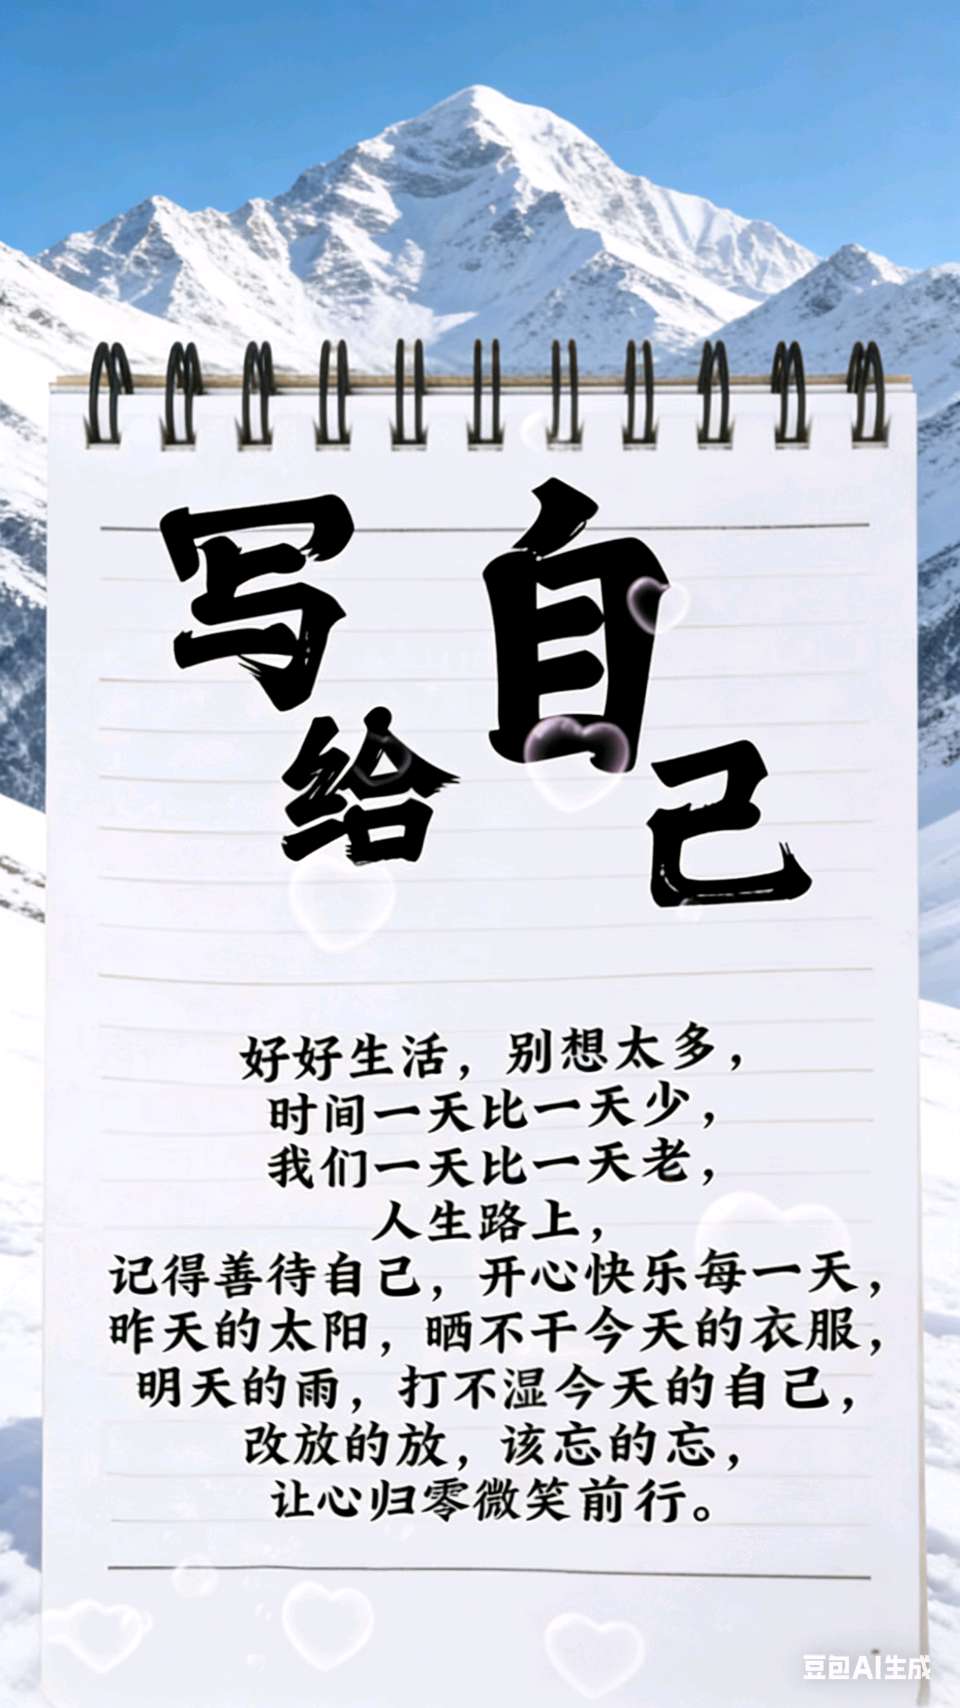 写给自己
好好生活，别想太多，
时间一天比一天少，
我们一天比一天老，
人生路上，
记得善待自己，开心快乐每一天，
昨天的太阳，晒不干今天的衣服，
明天的雨，打不湿今天的自己，
改放的放，该忘的忘，
让心归零微笑前行。
豆包AI生成